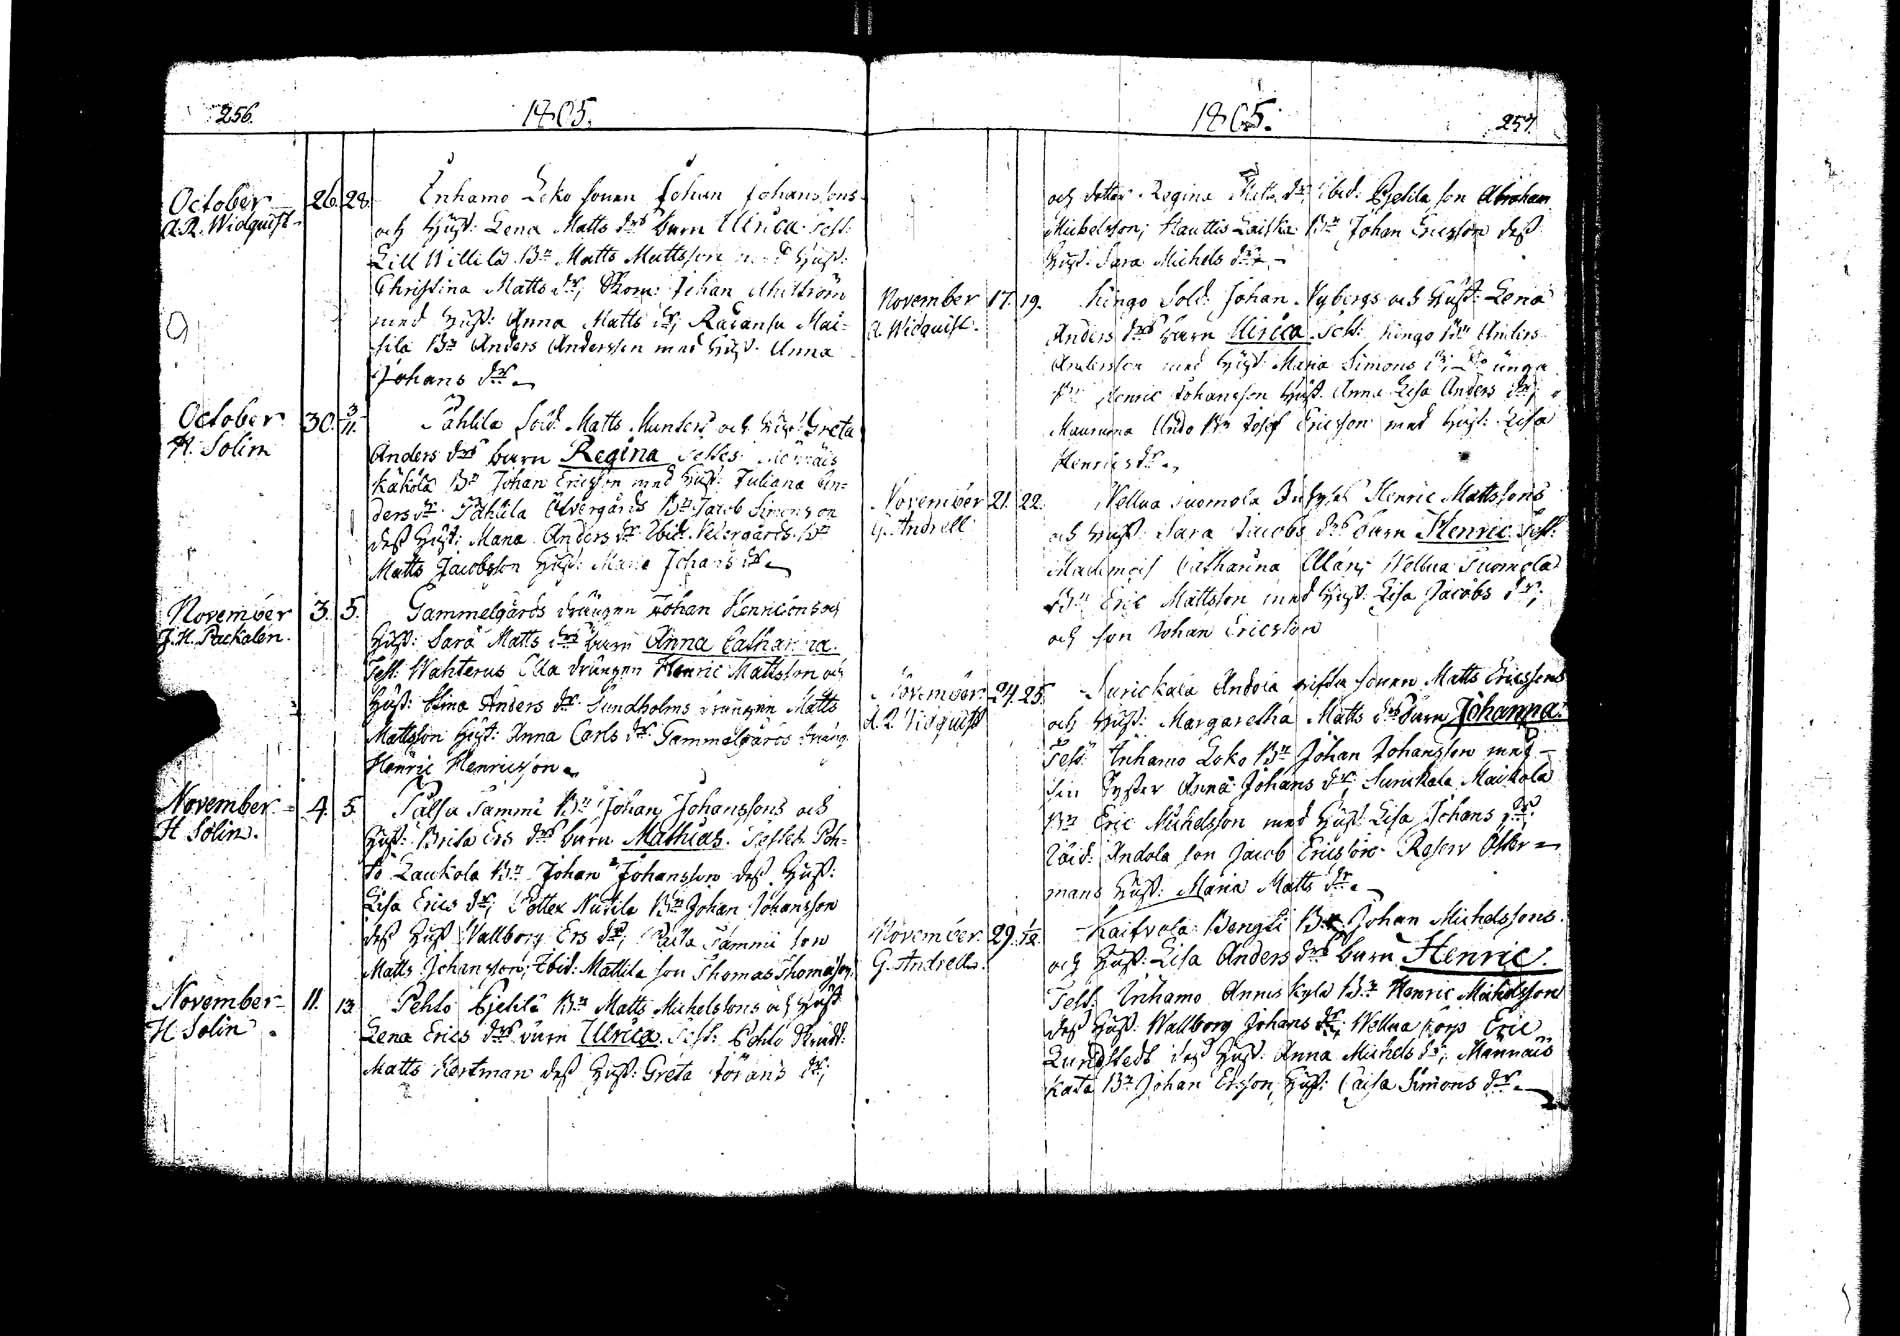 256.
1805.
October 26. 28. Inhamo Leko sonen Johan Johanssons
A.R. Widquist och Hust: Lena Matts drs barn Ulrica. Test:
Lill Willilä Bn Matts Mattsson med Hust:
Christina Matts dr, Skom: Johan Ahlström
med Hust: Anna Matts dr,
sila Bn Anders Andersson med Hust. Anna
Johans dr.
October 30. 3/11. Pahlila Sold. Matts Munters och Hust. Greta
H. Solin Anders drs barn Regina Testes Männäis
Kakola Bn Johan Ericsson med Hust: Juliana An-
ders dr. Pahlila Öfvergårds Bn Jacob Simonsson
dess Hust: Maria Anders dr Ibid: Nedergårds Bn
Matts Jacobsson Hust: Maria Johans dr
November 3. 5. Gammelgårds drängen Johan Henricsons och
J.H. Packalén. Hust: Sara Matts drs barn Anna Catharina.
Test: Wahterus drängen Henric Mattsson och
Hust: Stina Anders dr Sundholms drängen Matts
Mattsson Hust: Anna Carls dr Gammelgårds dräng
Henric Henricsson
November 4. 5 Palsa Tammi Bn Johan Johanssons och
H Solin. Hust: Brita Ers drs barn Mathias. Testes Peh-
to Laukola Bn Johan Johansson dess Hust:
Lisa Erics dr, Nuutila Bn Johan Johansson
dess Hust Wallborg Ers dr; Palsa Tammi son
Matts Johansson; Ibid: Mattila son Thomas Thomasson.
November 11. 13 Pehto Bjelilä Bn Matts Michelssons och Hust
H Solin. Lena Erics drs barn Ulrica Test: Pehto
Matts Hortman dess Hust: Greta Jörans dr;
1805.
257
och dotter Regina Matts dr, Ibid: Bjelila son Abraham
Michelsson; Hauttis Laiska Bn Johan Ericsson dess
Hust: Sara Michels dr
November 17. 19. Kingo Sold: Johan Nybergs och Hust: Lena
A Widquist. Anders drs barn Ulrica. Test: Kingo Bn Anders
Andersson med Hust: Maria Simons dr; unga
Bn Henric Johansson Hust. Anna Lisa Anders dr;
Maunuma Undo Bn Josef Ericsson med Hust: Lisa
Henrics dr.
November 21. 22. Wellua Suomola Inhyses Henric Mattssons
G. Andrell och Hust: Sara Jacobs drs barn Henric Test:
Mademois Catharina Alén; Wellua Suomola
Bn Eric Mattsson med Hust. Lisa Jacobs dr;
och son Johan Ericsson
November 24. 25. Surickala Andola gifta sonen Matts Ericssons
A.R. Widquist och Hust: Margaretha Matts drs barn Johanna.
Test: Inhamo Loko Bn Johan Johansson med
sin Syster Anna Johans dr; Surickala Maikola
Bn Eric Michelsson med Hust: Lisa Johans dr.
Ibid: Andola son Jacob Ericsson. Reserv Öster
mans Hust: Maria Matts dr.
November 29. 1/12. Kaitvola Bengti Bn Johan Michelssons
G. Andrell. och Hust: Lisa Anders drs barn Henric.
Test: Inhamo Annis kylä Bn Henric Michelsson
dess Hust: Wallborg Johans dr; Wellua Korp Eric
Lundstedt dess Hust: Anna Michels dr; Männäis
Kata Bn Johan Ersson, Hust: Caisa Simons dr.